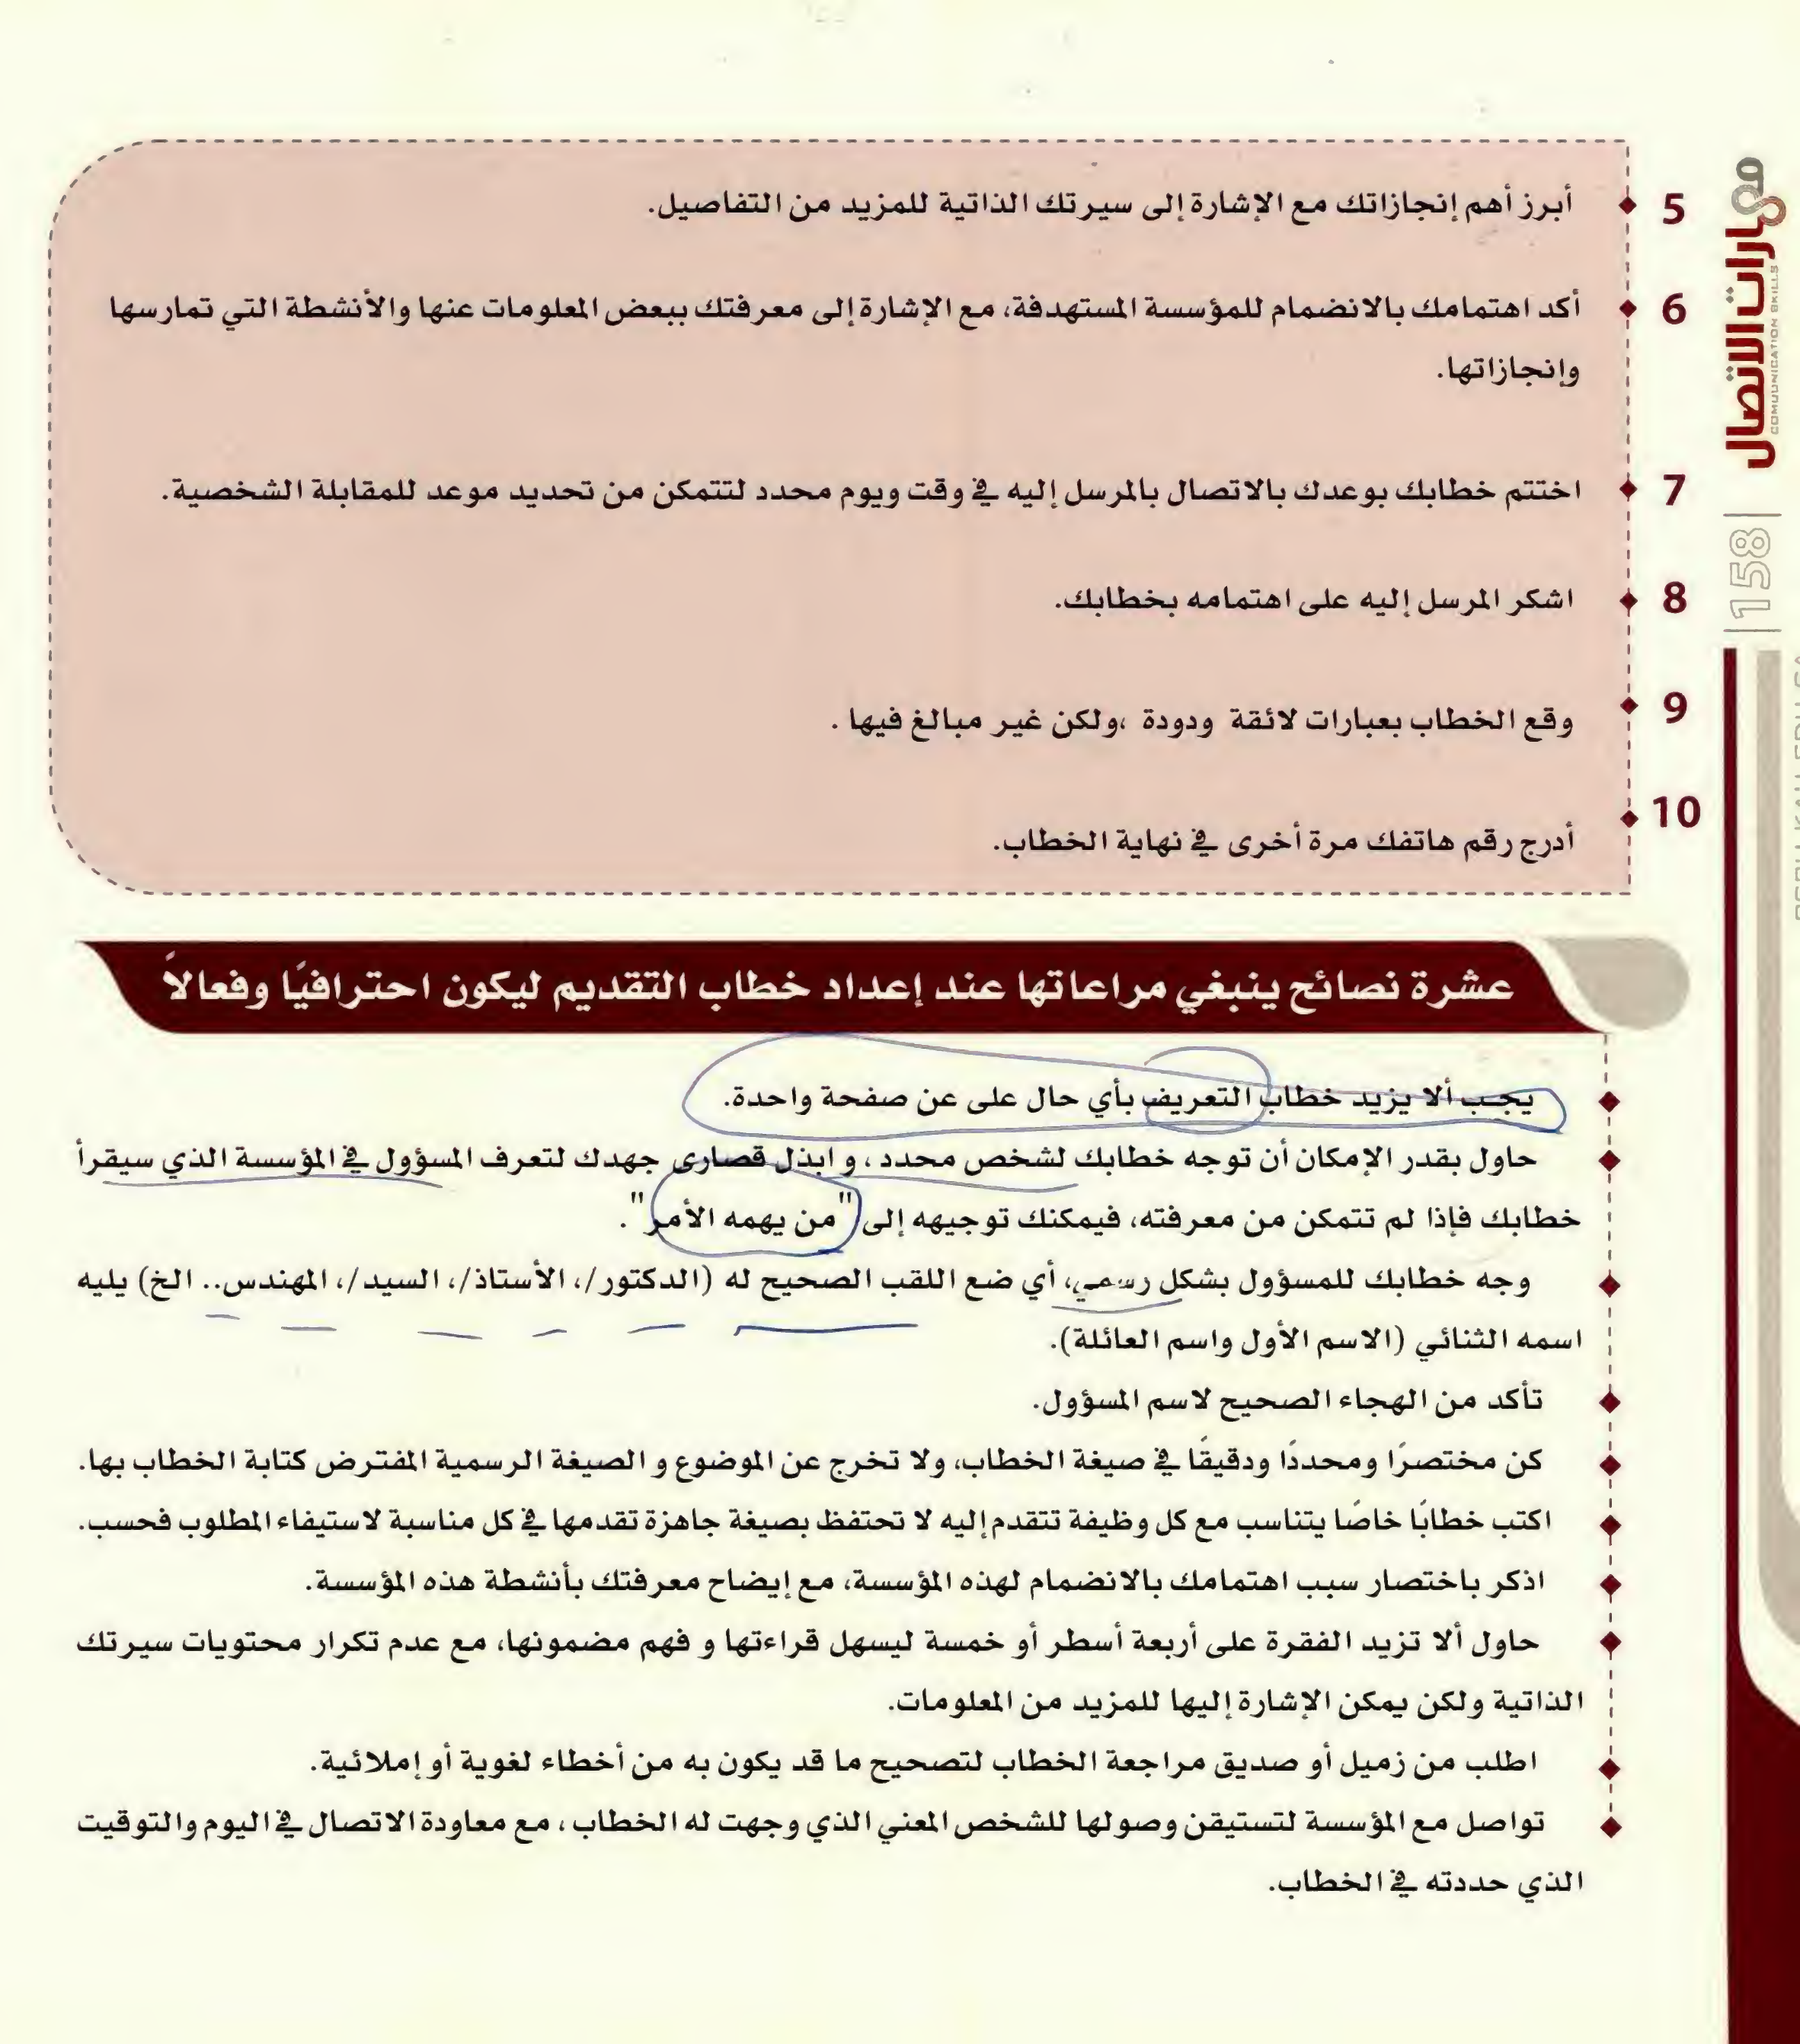 5 أبرز أهم إنجازاتك مع الإشارة إلى سيرتك الذاتية للمزيد من التفاصيل.
6 أكد اهتمامك بالانضمام للمؤسسة المستهدفة، مع الإشارة إلى معرفتك ببعض المعلومات عنها والأنشطة التي تمارسها
وإنجازاتها.
7 اختتم خطابك بوعدك بالاتصال بالمرسل إليه في وقت ويوم محدد لتتمكن من تحديد موعد للمقابلة الشخصية.
8 اشكر المرسل إليه على اهتمامه بخطابك.
9 وقع الخطاب بعبارات لائقة ودودة ،ولكن غير مبالغ فيها .
10 أدرج رقم هاتفك مرة أخرى في نهاية الخطاب.
عشرة نصائح ينبغي مراعاتها عند إعداد خطاب التقديم ليكون احترافيًا وفعالاً
يجب ألا يزيد خطاب التعريف بأي حال على عن صفحة واحدة.
حاول بقدر الإمكان أن توجه خطابك لشخص محدد ، و ابذل قصارى جهدك لتعرف المسؤول في المؤسسة الذي سيقرأ
خطابك فإذا لم تتمكن من معرفته، فيمكنك توجيهه إلى "من يهمه الأمر".
وجه خطابك للمسؤول بشكل رسمي، أي ضع اللقب الصحيح له (الدكتور/، الأستاذ/، السيد/، المهندس.. الخ) يليه
اسمه الثنائي (الاسم الأول واسم العائلة).
تأكد من الهجاء الصحيح لاسم المسؤول.
كن مختصرًا ومحددًا ودقيقًا في صيغة الخطاب، ولا تخرج عن الموضوع و الصيغة الرسمية المفترض كتابة الخطاب بها.
اكتب خطابًا خاصًا يتناسب مع كل وظيفة تتقدم إليه لا تحتفظ بصيغة جاهزة تقدمها في كل مناسبة لاستيفاء المطلوب فحسب.
اذكر باختصار سبب اهتمامك بالانضمام لهذه المؤسسة، مع إيضاح معرفتك بأنشطة هذه المؤسسة.
حاول ألا تزيد الفقرة على أربعة أسطر أو خمسة ليسهل قراءتها و فهم مضمونها، مع عدم تكرار محتويات سيرتك
الذاتية ولكن يمكن الإشارة إليها للمزيد من المعلومات.
اطلب من زميل أو صديق مراجعة الخطاب لتصحيح ما قد يكون به من أخطاء لغوية أو إملائية.
تواصل مع المؤسسة لتستيقن وصولها للشخص المعني الذي وجهت له الخطاب ، مع معاودة الاتصال في اليوم والتوقيت
الذي حددته في الخطاب.
مهارات الاتصال
COMUUNICATION SKILLS
158